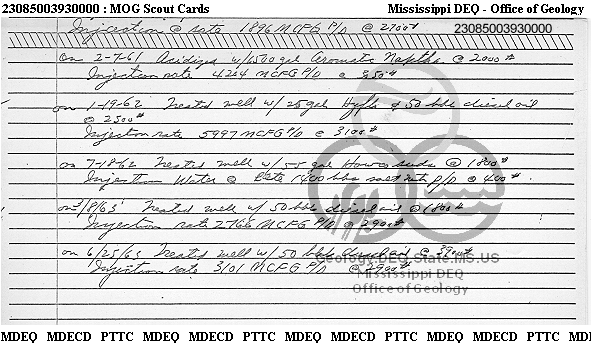 23085003930000 : MOG Scout Cards
Mississippi DEQ - Office of Geology
Injection @ rate 1896 MCFG P/D @ 2900#
23085003930000
on 2-7-61 Acidized w/6500 gal Aromatic Naptha @ 2000#
Injection rate 4224 MCFG P/D @ 850#
on 1-19-62 Treated well w/ 25 gal Hyflo & 50 bbls diesel oil
@ 2500#
Injection rate 5997 MCFG P/D @ 3100#
on 7-18-62 Treated well w/ 55 gal Howco Suds @ 1800#
Injection Water @ Rate 1400 bbls salt wtr P/D @ 400#
on 3/8/63 Treated well w/ 50 bbls diesel oil @ 1800#
Injection rate 2766 MCFG P/D @ 2900#
on 6/25/65 Treated well w/ 50 bbls diesel oil @ 3900#
Injection rate 3101 MCFG P/D @ 3900#
Geology.DEQ.State.MS.US
Mississippi DEQ
Office of Geology
MDEQ MDECD PTTC MDEQ MDECD PTTC MDEQ MDECD PTTC MDEQ MDECD PTTC